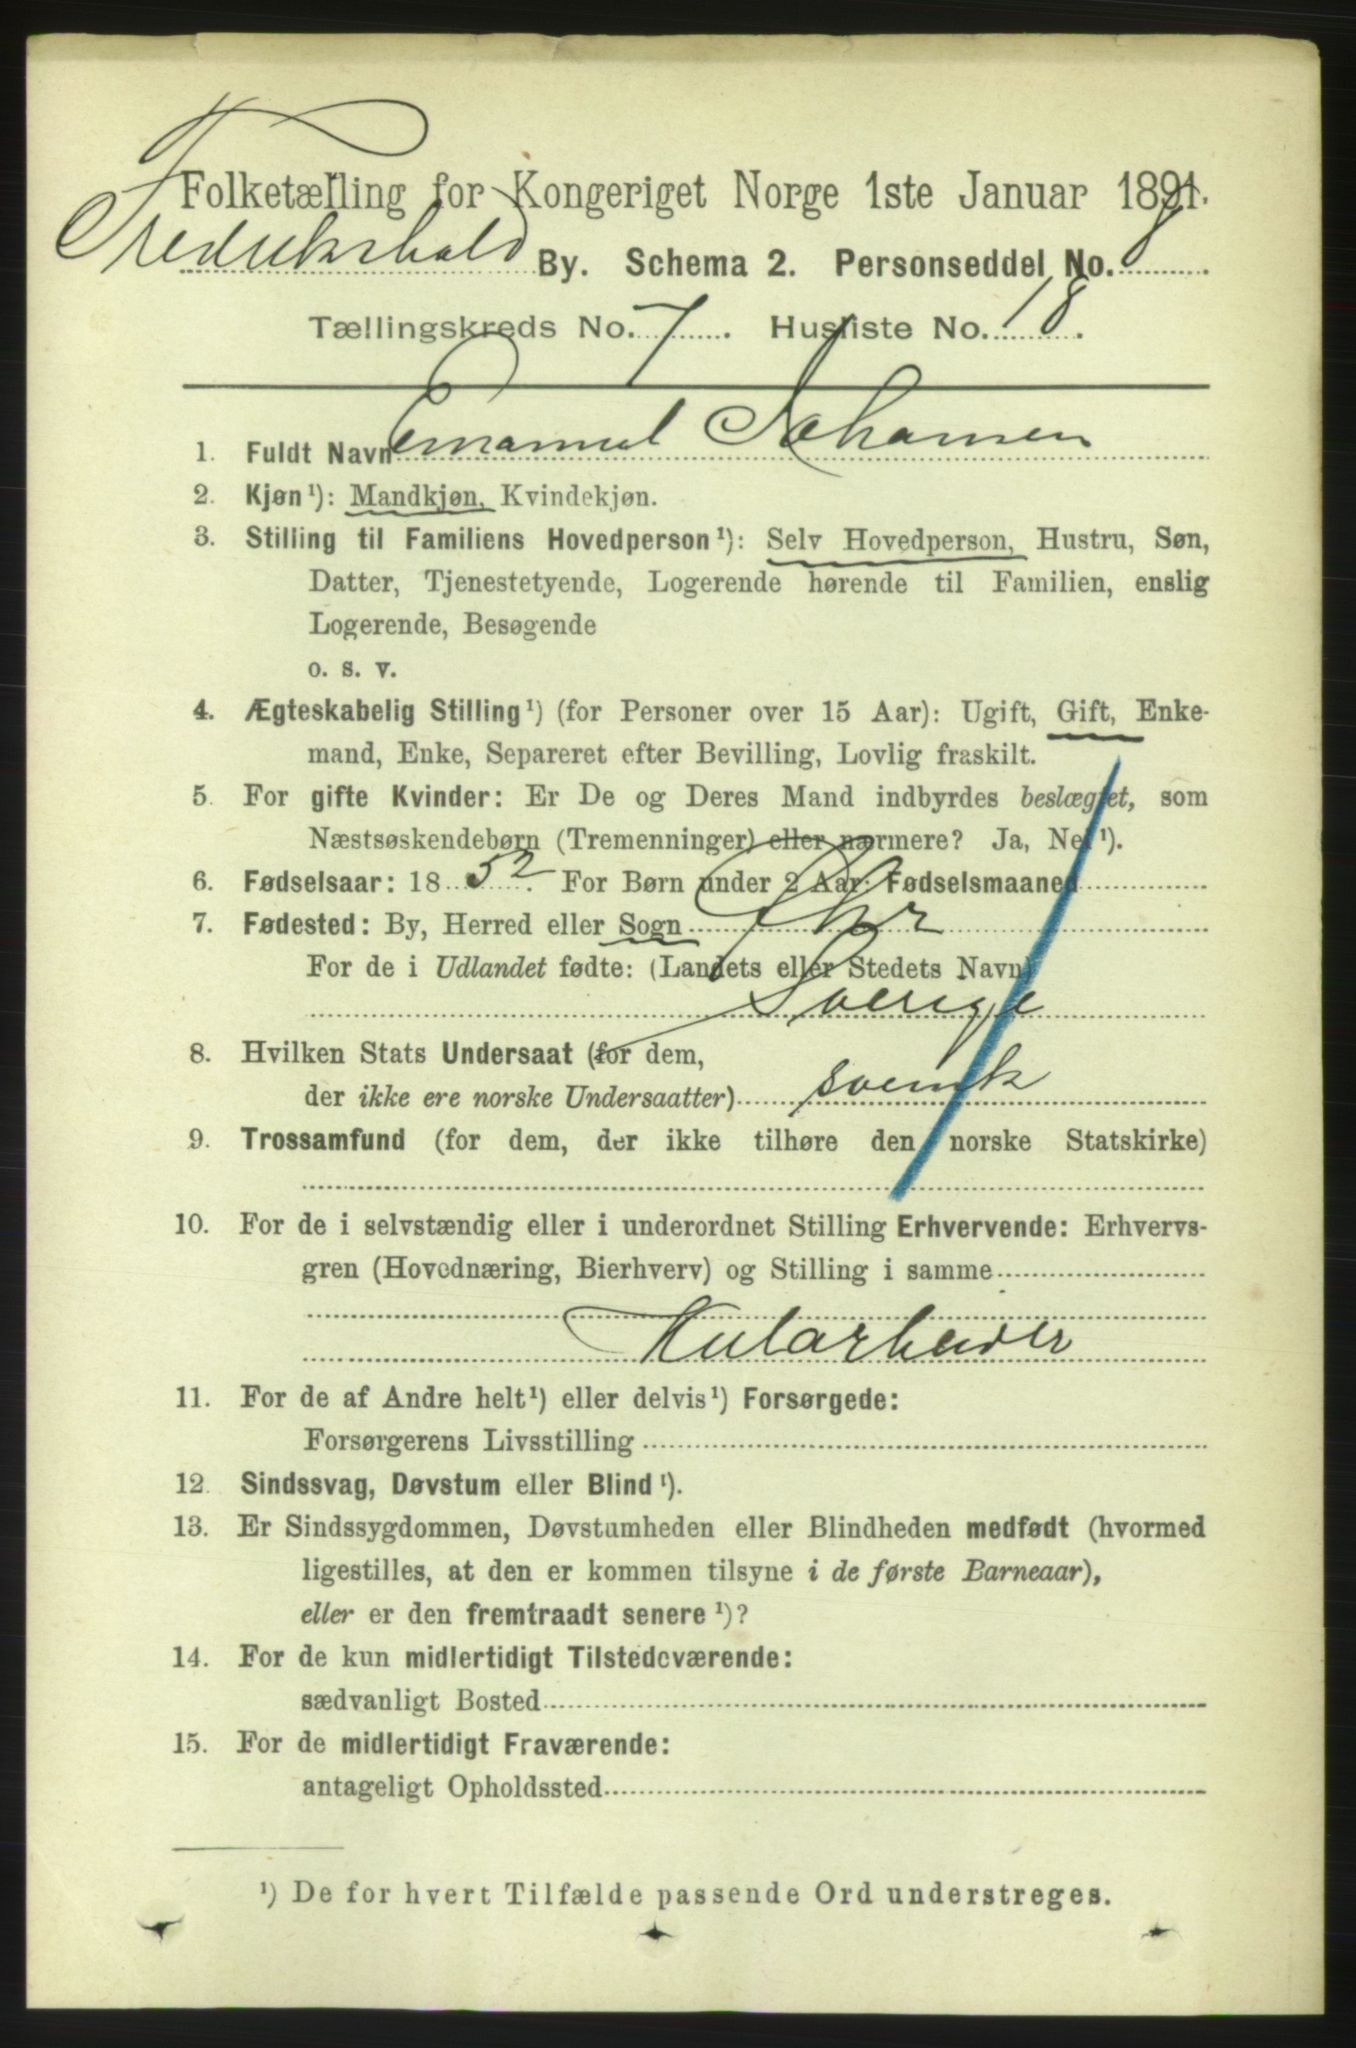 Folketælling for Kongeriget Norge 1ste Januar 1891.
Fredrikshald By. Schema 2. Personseddel No. 8
Tællingskreds No. 7. Husliste No. 18.
1. Fuldt Navn Emanuel Johansen
2. Kjøn¹): Mandkjøn, Kvindekjøn.
3. Stilling til Familiens Hovedperson¹): Selv Hovedperson, Hustru, Søn,
Datter, Tjenestetyende, Logerende hørende til Familien, enslig
Logerende, Besøgende
o. s. v.
4. Ægteskabelig Stilling¹) (for Personer over 15 Aar): Ugift, Gift, Enke-
mand, Enke, Separeret efter Bevilling, Lovlig fraskilt.
5. For gifte Kvinder: Er De og Deres Mand indbyrdes beslægtet, som
Næstsøskendebørn (Tremenninger) eller nærmere? Ja, Nei¹).
6. Fødselsaar: 1852. For Børn under 2 Aar: Fødselsmaaned
7. Fødested: By, Herred eller Sogn
For de i Udlandet fødte: (Landets eller Stedets Navn)
Sverige
8. Hvilken Stats Undersaat (for dem,
der ikke ere norske Undersaatter) svensk
9. Trossamfund (for dem, der ikke tilhøre den norske Statskirke)
10. For de i selvstændig eller i underordnet Stilling Erhvervende: Erhvervs-
gren (Hovednæring, Bierhverv) og Stilling i samme
11. For de af Andre helt¹) eller delvis¹) Forsørgede:
Forsørgerens Livsstilling
12. Sindssvag, Døvstum eller Blind¹).
13. Er Sindssygdommen, Døvstumheden eller Blindheden medfødt (hvormed
ligestilles, at den er kommen tilsyne i de første Barneaar),
eller er den fremtraadt senere¹)?
14. For de kun midlertidigt Tilstedeværende:
sædvanligt Bosted
15. For de midlertidigt Fraværende:
antageligt Opholdssted
¹) De for hvert Tilfælde passende Ord understreges.